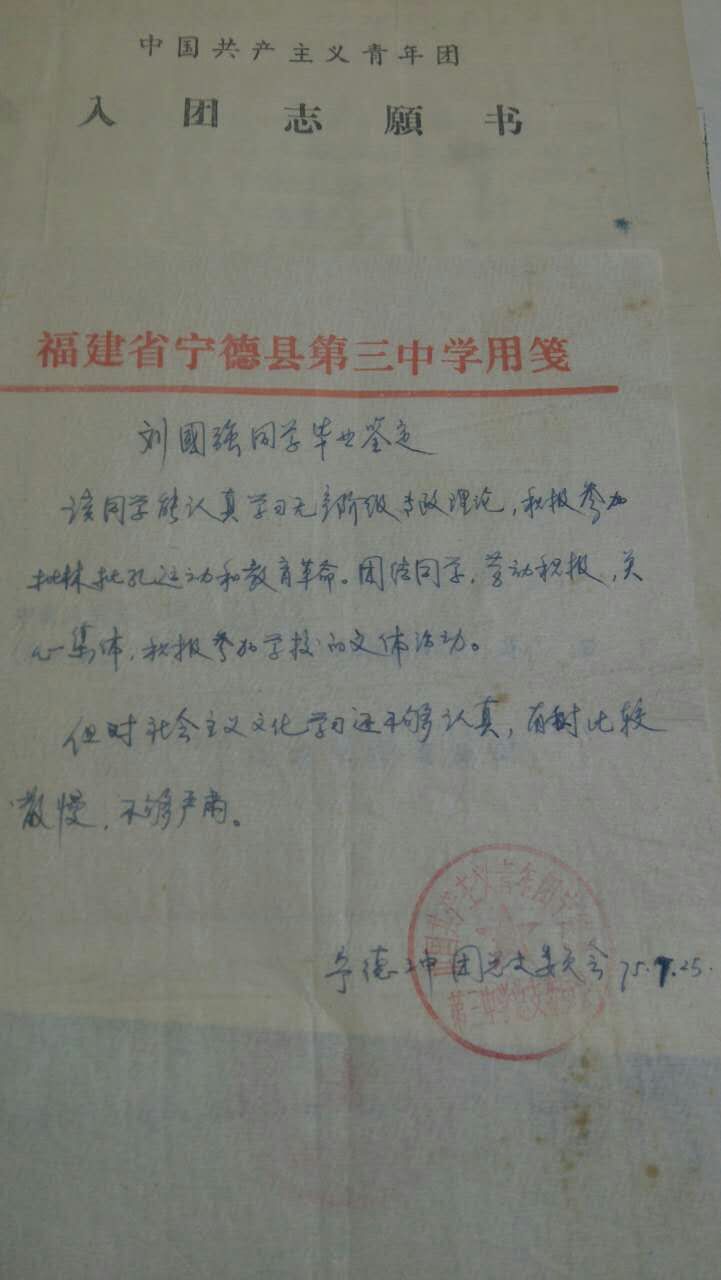 中国共产主义青年团
入团志願书
福建省宁德县第三中学用笺
刘國强同学毕业鉴定
该同学能认真学习无产阶级专政理论，积极参加
批林批孔运动和教育革命。团结同学，劳动积极，关
心集体，积极参加学校的文体活动。
但对社会主义文化学习还不够认真，有时比较
散慢，不够严肃。
宁德三中团总支委员会 75.7.25.
中国共产主义青年团宁德
第三中学总支